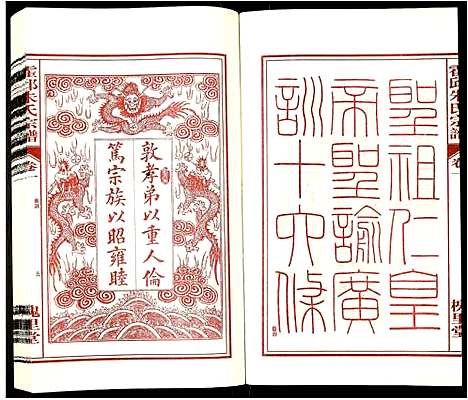 聖祖仁皇
帝聖諭廣
訓十六條
霍邱朱氏宗譜
卷一
敦孝弟以重人倫
篤宗族以昭雍睦
霍邱朱氏宗譜
卷一